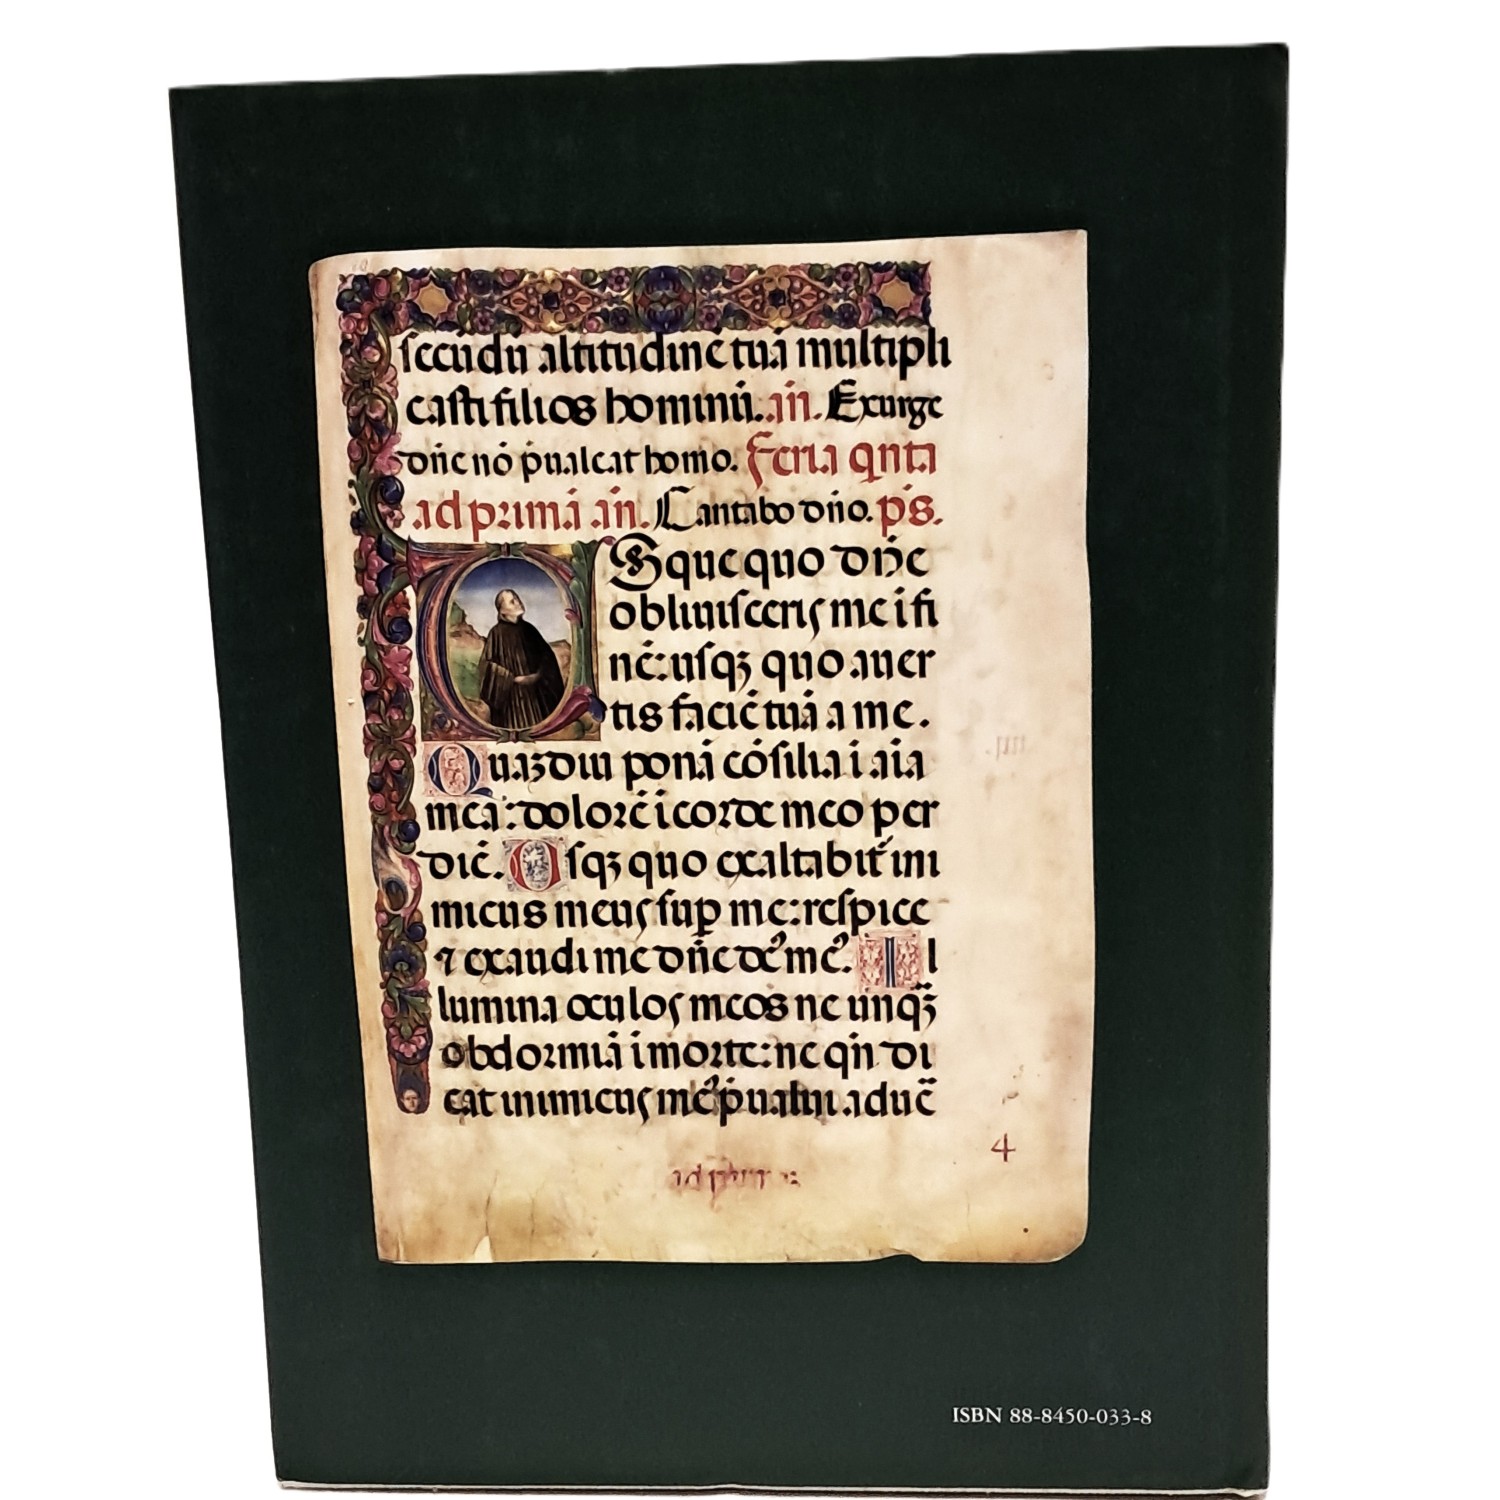 secūdū altitudinē tuā multipli
casti filios hominū. añ. Exurge
dñe nō p̄ualeat homo. Feria qnta
ad primā añ. Cantabo dño. ps.
Usquequo dñe
obliuisceris me ī fi
nē: usqꝫ quo auer
tis faciē tuā a me.
Quaꝫdiu ponā cōsilia ī aīa
mea: dolorē ī corde meo per
diē. Usqꝫ quo exaltabit̄ ini
micus meus sup me: respice
⁊ exaudi me dñe deꝰ meꝰ. Il
lumina oculos meos ne unqꝫ̄
obdormiā ī morte: ne qn̄ di
cat inimicus meꝰ p̄ualui aduē
4
ISBN 88-8450-033-8